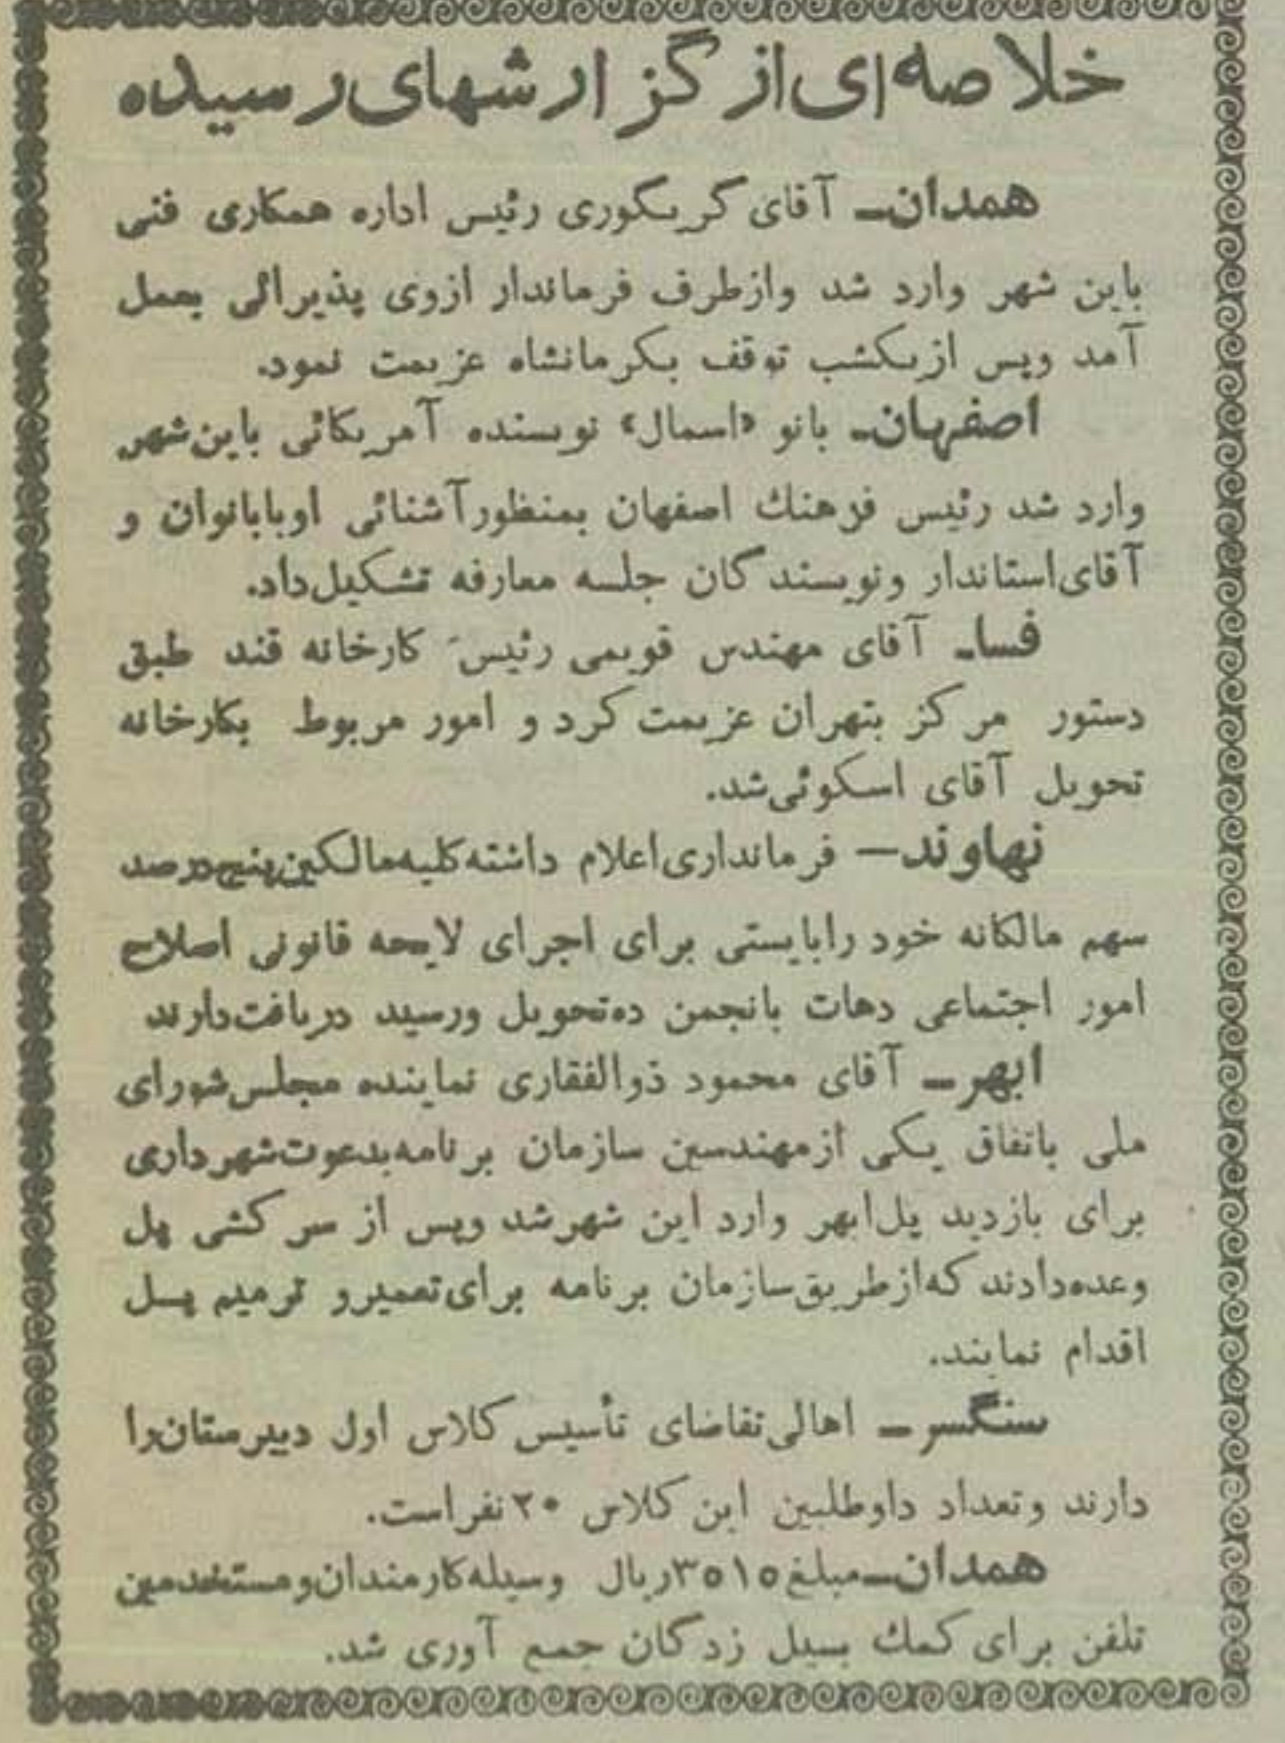 خلاصه‌ای از گزارشهای رسیده
همدان- آقای گریگوری رئیس اداره همکاری فنی
باین شهر وارد شد واز طرف فرماندار ازوی پذیرائی بعمل
آمد وپس از یکشب توقف بکرمانشاه عزیمت نمود.
اصفهان- بانو «اسمال» نویسنده آمریکائی باین شهر
وارد شد رئیس فرهنك اصفهان بمنظور آشنائی اوبابانوان و
آقای استاندار ونویسندگان جلسه معارفه تشکیل داد.
فسا- آقای مهندس قویمی رئیس کارخانه قند طبق
دستور مرکز بتهران عزیمت کرد و امور مربوط بکارخانه
تحویل آقای اسکوئی شد.
نهاوند- فرمانداری اعلام داشته کلیه مالکین پنج درصد
سهم مالکانه خود رابایستی برای اجرای لایحه قانونی اصلاح
امور اجتماعی دهات بانجمن ده تحویل ورسید دریافت دارند
ابهر- آقای محمود ذوالفقاری نماینده مجلس شورای
ملی باتفاق یکی ازمهندسین سازمان برنامه بدعوت شهرداری
برای بازدید پل ابهر وارد این شهر شد وپس از سرکشی پل
وعده دادند که از طریق سازمان برنامه برای تعمیر و ترمیم پل
اقدام نمایند.
سنگسر- اهالی تقاضای تأسیس کلاس اول دبیرستان را
دارند وتعداد داوطلبین این کلاس ۲۰ نفر است.
همدان- مبلغ ۳۵۱۵ ریال وسیله کارمندان و مستخدمین
تلفن برای کمك بسیل زدگان جمع آوری شد.